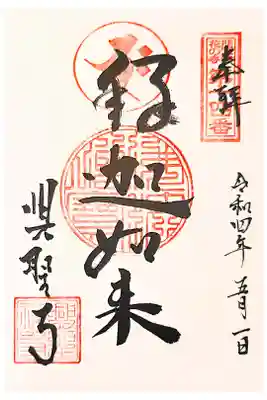 奉拝
令和四年 五月一日
釈迦如来
興聖寺